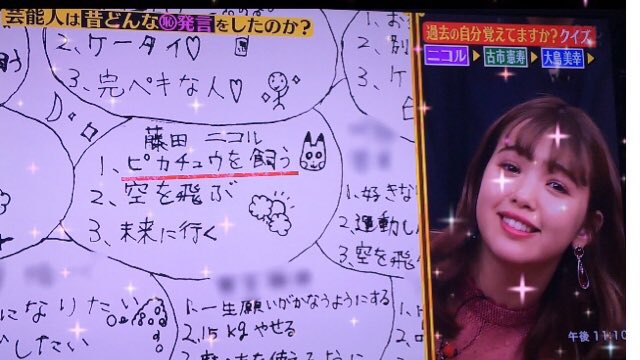 芸能人は昔どんな㊙発言をしたのか?
過去の自分覚えてますか?クイズ
ニコル▶古市憲寿▶大島美幸▶
2、ケータイ♡
3、完ペキな人♡
藤田 ニコル
1、ピカチュウを飼う
2、空を飛ぶ
3、未来に行く
1、好きな
2、運動し
3、空を飛
になりたい
したい
1、一生願いがかなうようにする
2、15kgやせる
午後 11:10